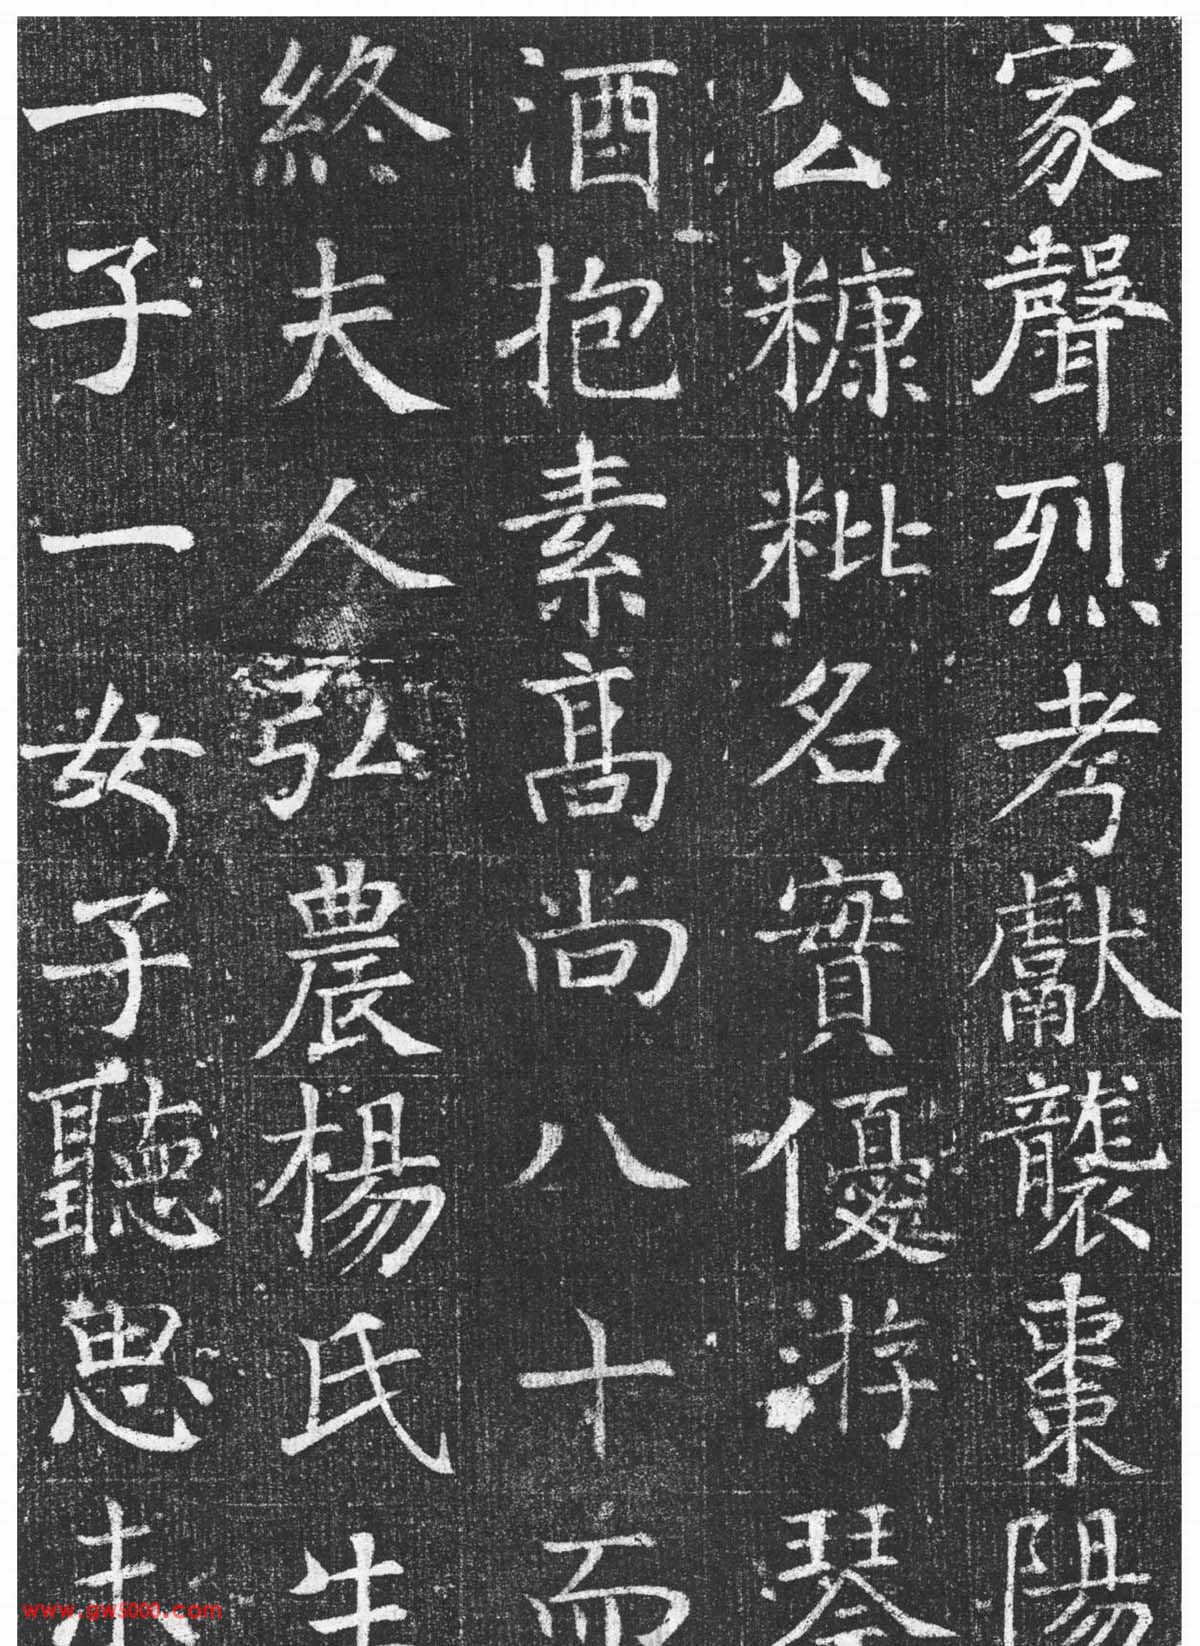 家聲烈考獻襲棗陽
公糠粃名實優游琴
酒抱素高尚八十而
終夫人弘農楊氏生
一子一女子聽思未
www.gw5000.com